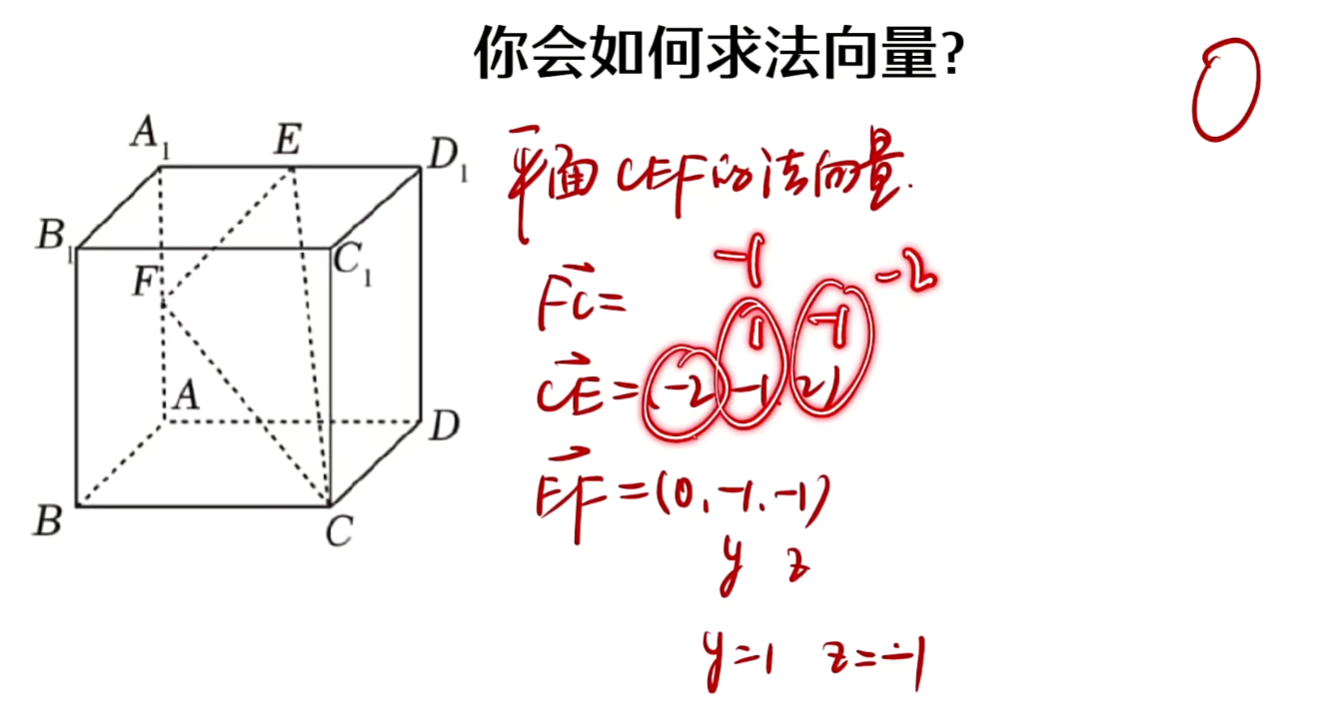 你会如何求法向量?
A₁ E D₁
B₁ C₁
F
A D
B C
平面CEF的法向量.
FC=
-1 -2
1 -1
CE=(-2,-1,2)
EF=(0,-1,-1)
y z
y=1 z=-1